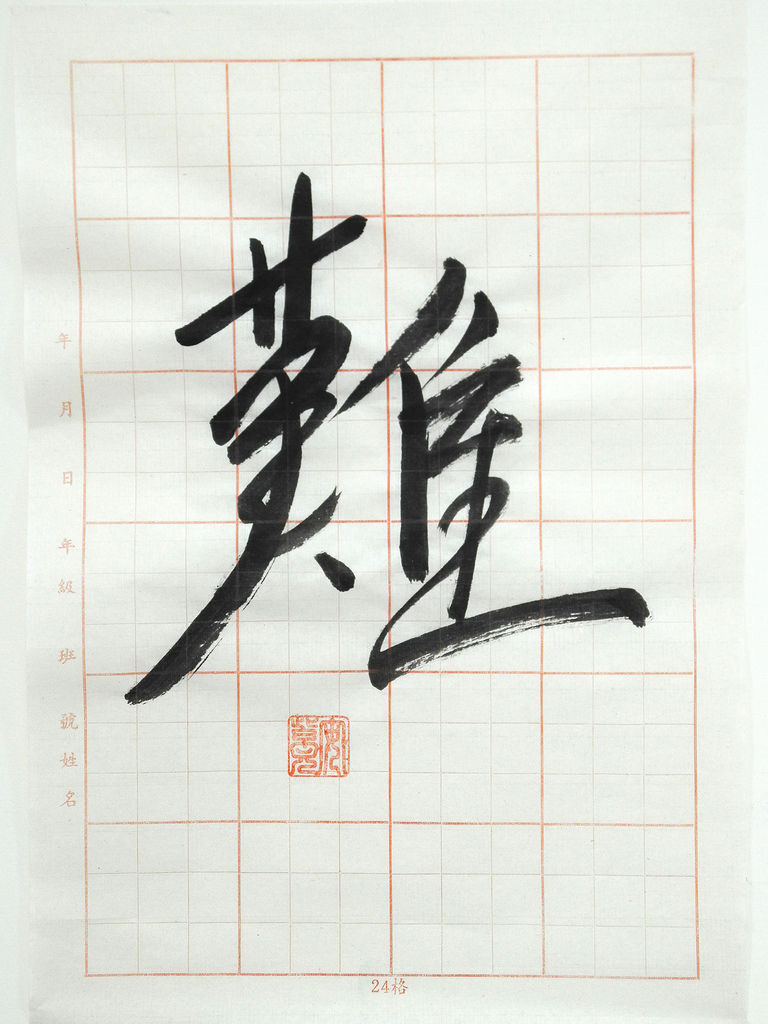 難
年 月 日 年級 班 號 姓名
24格